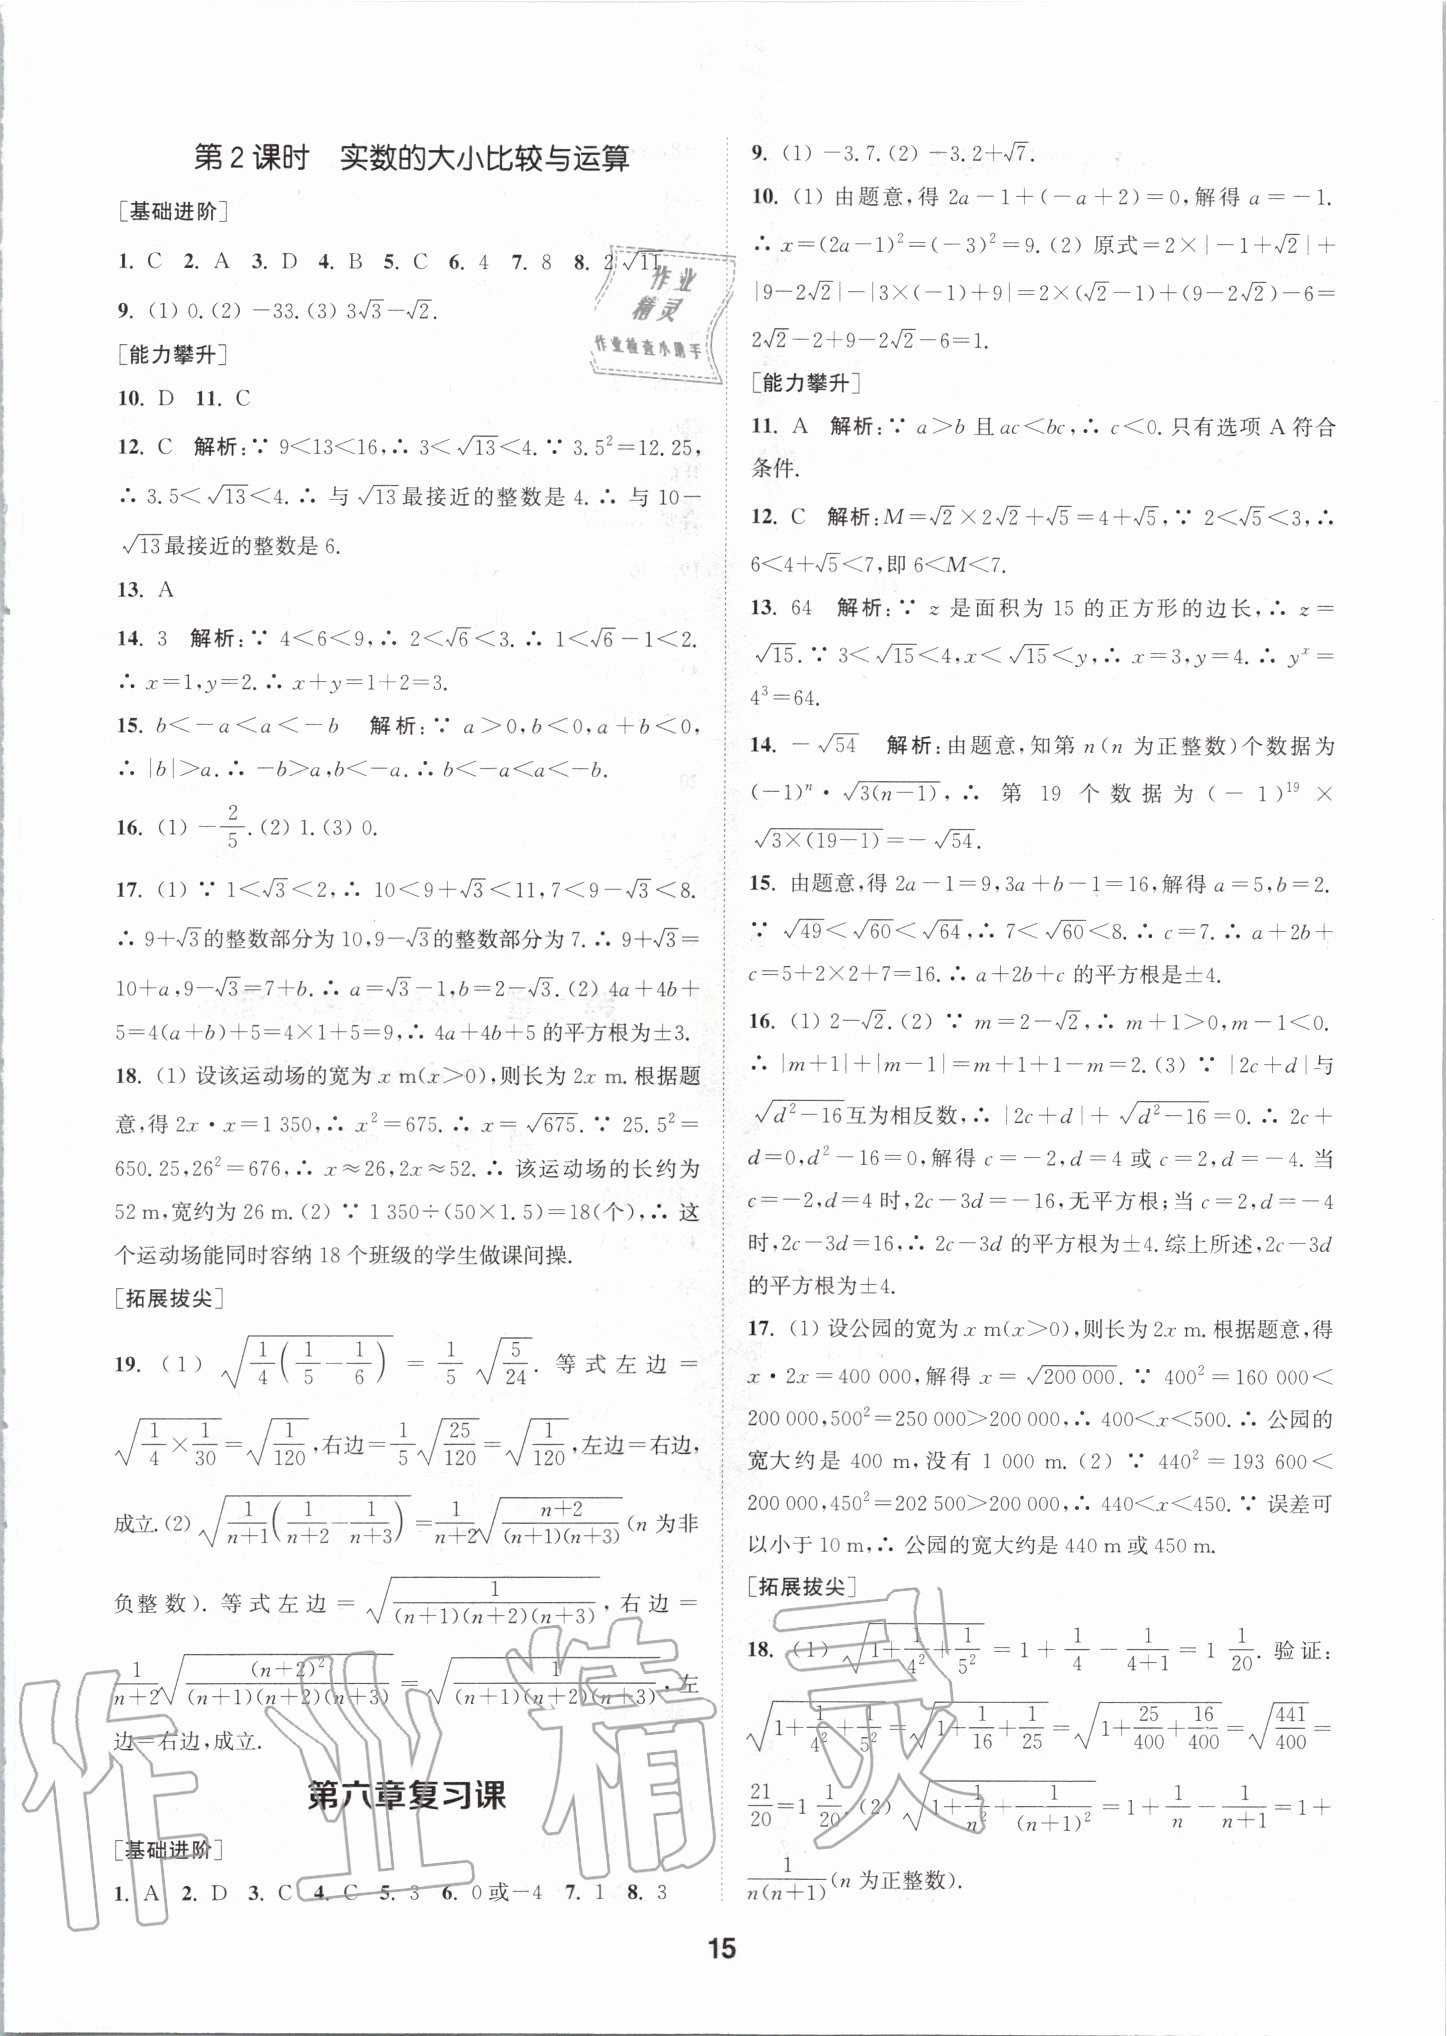 第2课时 实数的大小比较与运算
[基础进阶]
1. C 2. A 3. D 4. B 5. C 6. 4 7. 8 8. 2√11
9. (1) 0. (2) −33. (3) 3√3−√2.
[能力攀升]
10. D 11. C
12. C 解析:∵ 9<13<16,∴ 3<√13<4. ∵ 3.5²=12.25,
∴ 3.5<√13<4. ∴ 与√13最接近的整数是4. ∴ 与10−
√13最接近的整数是6.
13. A
14. 3 解析:∵ 4<6<9,∴ 2<√6<3. ∴ 1<√6−1<2.
∴ x=1,y=2. ∴ x+y=1+2=3.
15. b<−a<a<−b 解析:∵ a>0,b<0,a+b<0,
∴ |b|>a. ∴ −b>a,b<−a. ∴ b<−a<a<−b.
16. (1) −2/5. (2) 1. (3) 0.
17. (1) ∵ 1<√3<2,∴ 10<9+√3<11,7<9−√3<8.
∴ 9+√3的整数部分为10,9−√3的整数部分为7. ∴ 9+√3=
10+a,9−√3=7+b. ∴ a=√3−1,b=2−√3. (2) 4a+4b+
5=4(a+b)+5=4×1+5=9,∴ 4a+4b+5的平方根为±3.
18. (1) 设该运动场的宽为x m(x>0),则长为2x m. 根据题
意,得2x·x=1 350,∴ x²=675. ∴ x=√675. ∵ 25.5²=
650.25,26²=676,∴ x≈26,2x≈52. ∴ 该运动场的长约为
52 m,宽约为26 m. (2) ∵ 1 350÷(50×1.5)=18(个),∴ 这
个运动场能同时容纳18个班级的学生做课间操.
[拓展拔尖]
19. (1) √(1/4(1/5−1/6)) = 1/5 √(5/24). 等式左边=
√(1/4×1/30)=√(1/120),右边=1/5√(25/120)=√(1/120),左边=右边,
成立. (2) √(1/(n+1)(1/(n+2)−1/(n+3)))=1/(n+2)√((n+2)/((n+1)(n+3)))(n为非
负整数). 等式左边=√(1/((n+1)(n+2)(n+3))),右边=
1/(n+2)√((n+2)²/((n+1)(n+2)(n+3)))=√(1/((n+1)(n+2)(n+3))),左
边=右边,成立.
第六章复习课
[基础进阶]
1. A 2. D 3. C 4. C 5. 3 6. 0或−4 7. 1 8. 3
9. (1) −3.7. (2) −3.2+√7.
10. (1) 由题意,得2a−1+(−a+2)=0,解得a=−1.
∴ x=(2a−1)²=(−3)²=9. (2) 原式=2×|−1+√2|+
|9−2√2|−|3×(−1)+9|=2×(√2−1)+(9−2√2)−6=
2√2−2+9−2√2−6=1.
[能力攀升]
11. A 解析:∵ a>b且ac<bc,∴ c<0. 只有选项A符合
条件.
12. C 解析:M=√2×2√2+√5=4+√5,∵ 2<√5<3,∴
6<4+√5<7,即6<M<7.
13. 64 解析:∵ z是面积为15的正方形的边长,∴ z=
√15. ∵ 3<√15<4,x<√15<y,∴ x=3,y=4. ∴ yˣ=
4³=64.
14. −√54 解析:由题意,知第n(n为正整数)个数据为
(−1)ⁿ·√(3(n−1)),∴ 第19个数据为(−1)¹⁹×
√(3×(19−1))=−√54.
15. 由题意,得2a−1=9,3a+b−1=16,解得a=5,b=2.
∵ √49<√60<√64,∴ 7<√60<8. ∴ c=7. ∴ a+2b+
c=5+2×2+7=16. ∴ a+2b+c的平方根是±4.
16. (1) 2−√2. (2) ∵ m=2−√2,∴ m+1>0,m−1<0.
∴ |m+1|+|m−1|=m+1+1−m=2. (3) ∵ |2c+d|与
√(d²−16)互为相反数,∴ |2c+d|+√(d²−16)=0. ∴ 2c+
d=0,d²−16=0,解得c=−2,d=4或c=2,d=−4. 当
c=−2,d=4时,2c−3d=−16,无平方根;当c=2,d=−4
时,2c−3d=16,∴ 2c−3d的平方根为±4. 综上所述,2c−3d
的平方根为±4.
17. (1) 设公园的宽为x m(x>0),则长为2x m. 根据题意,得
x·2x=400 000,解得x=√200 000. ∵ 400²=160 000<
200 000,500²=250 000>200 000,∴ 400<x<500. ∴ 公园的
宽大约是400 m,没有1 000 m. (2) ∵ 440²=193 600<
200 000,450²=202 500>200 000,∴ 440<x<450. ∵ 误差可
以小于10 m,∴ 公园的宽大约是440 m或450 m.
[拓展拔尖]
18. (1) √(1+1/4²+1/5²)=1+1/4−1/(4+1)=1 1/20. 验证:
√(1+1/4²+1/5²)=√(1+1/16+1/25)=√(1+25/400+16/400)=√(441/400)=
21/20=1 1/20. (2) √(1+1/n²+1/(n+1)²)=1+1/n−1/(n+1)=1+
1/(n(n+1))(n为正整数).
15
作业
精灵
作业检查小助手
作业精灵